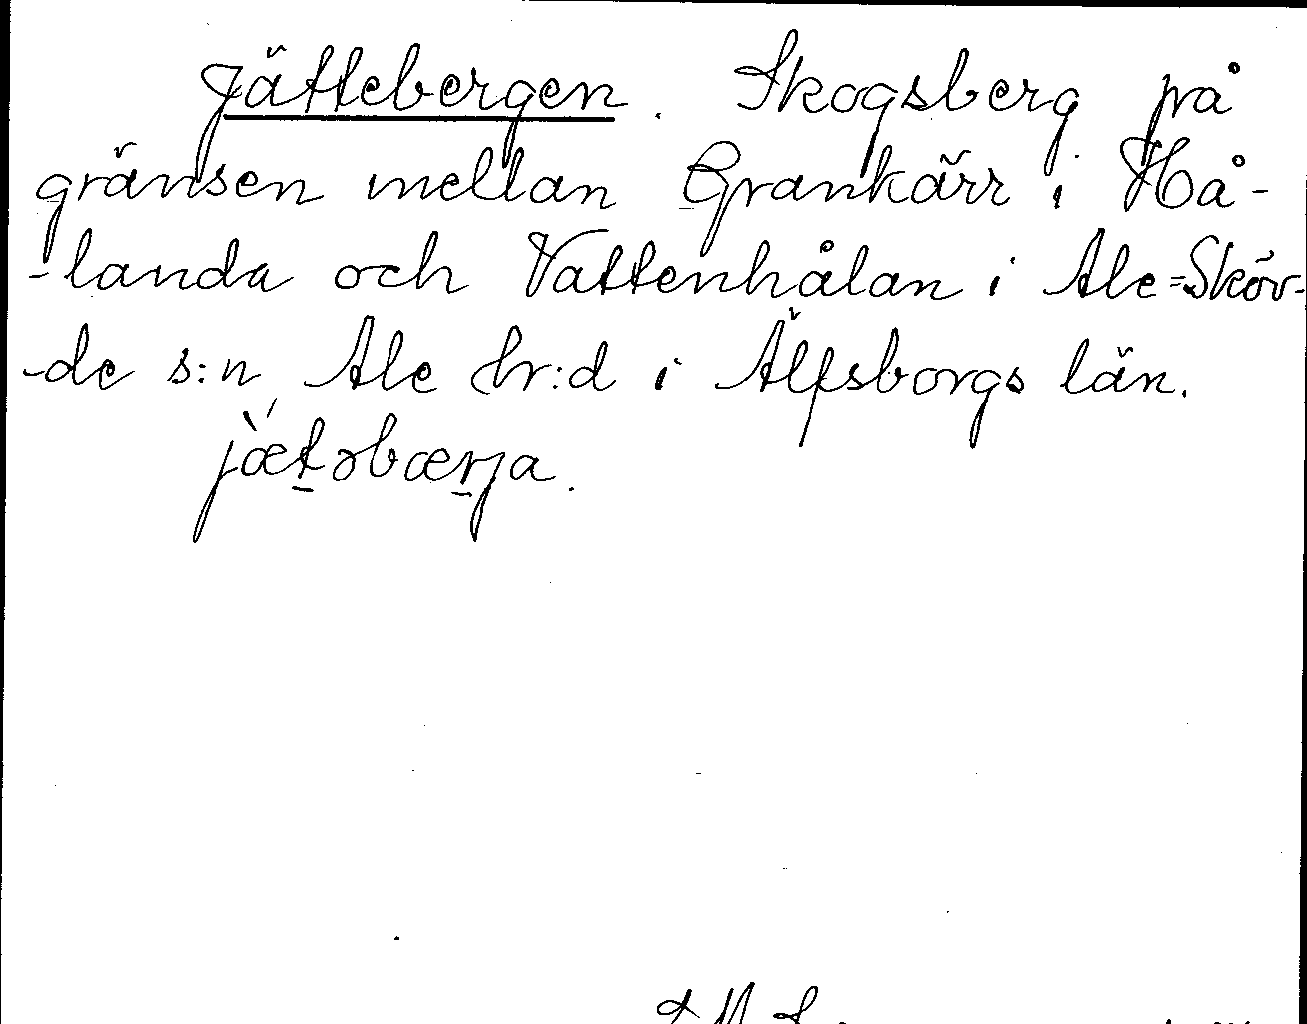 Jättebergen. Skogsberg på
gränsen mellan Grankärr i Hå-
-landa och Vattenhålan i Ale-Sköv-
-de s:n, Ale hr:d i Älfsborgs län.
jæ̀t̠əbær̠ja.